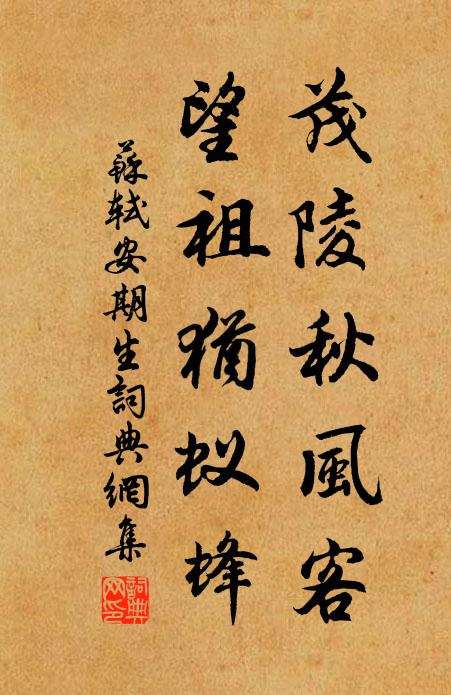 茂陵秋風客
望祖猶蚁蜂
蘇軾安期生詞典網集
詞典网印